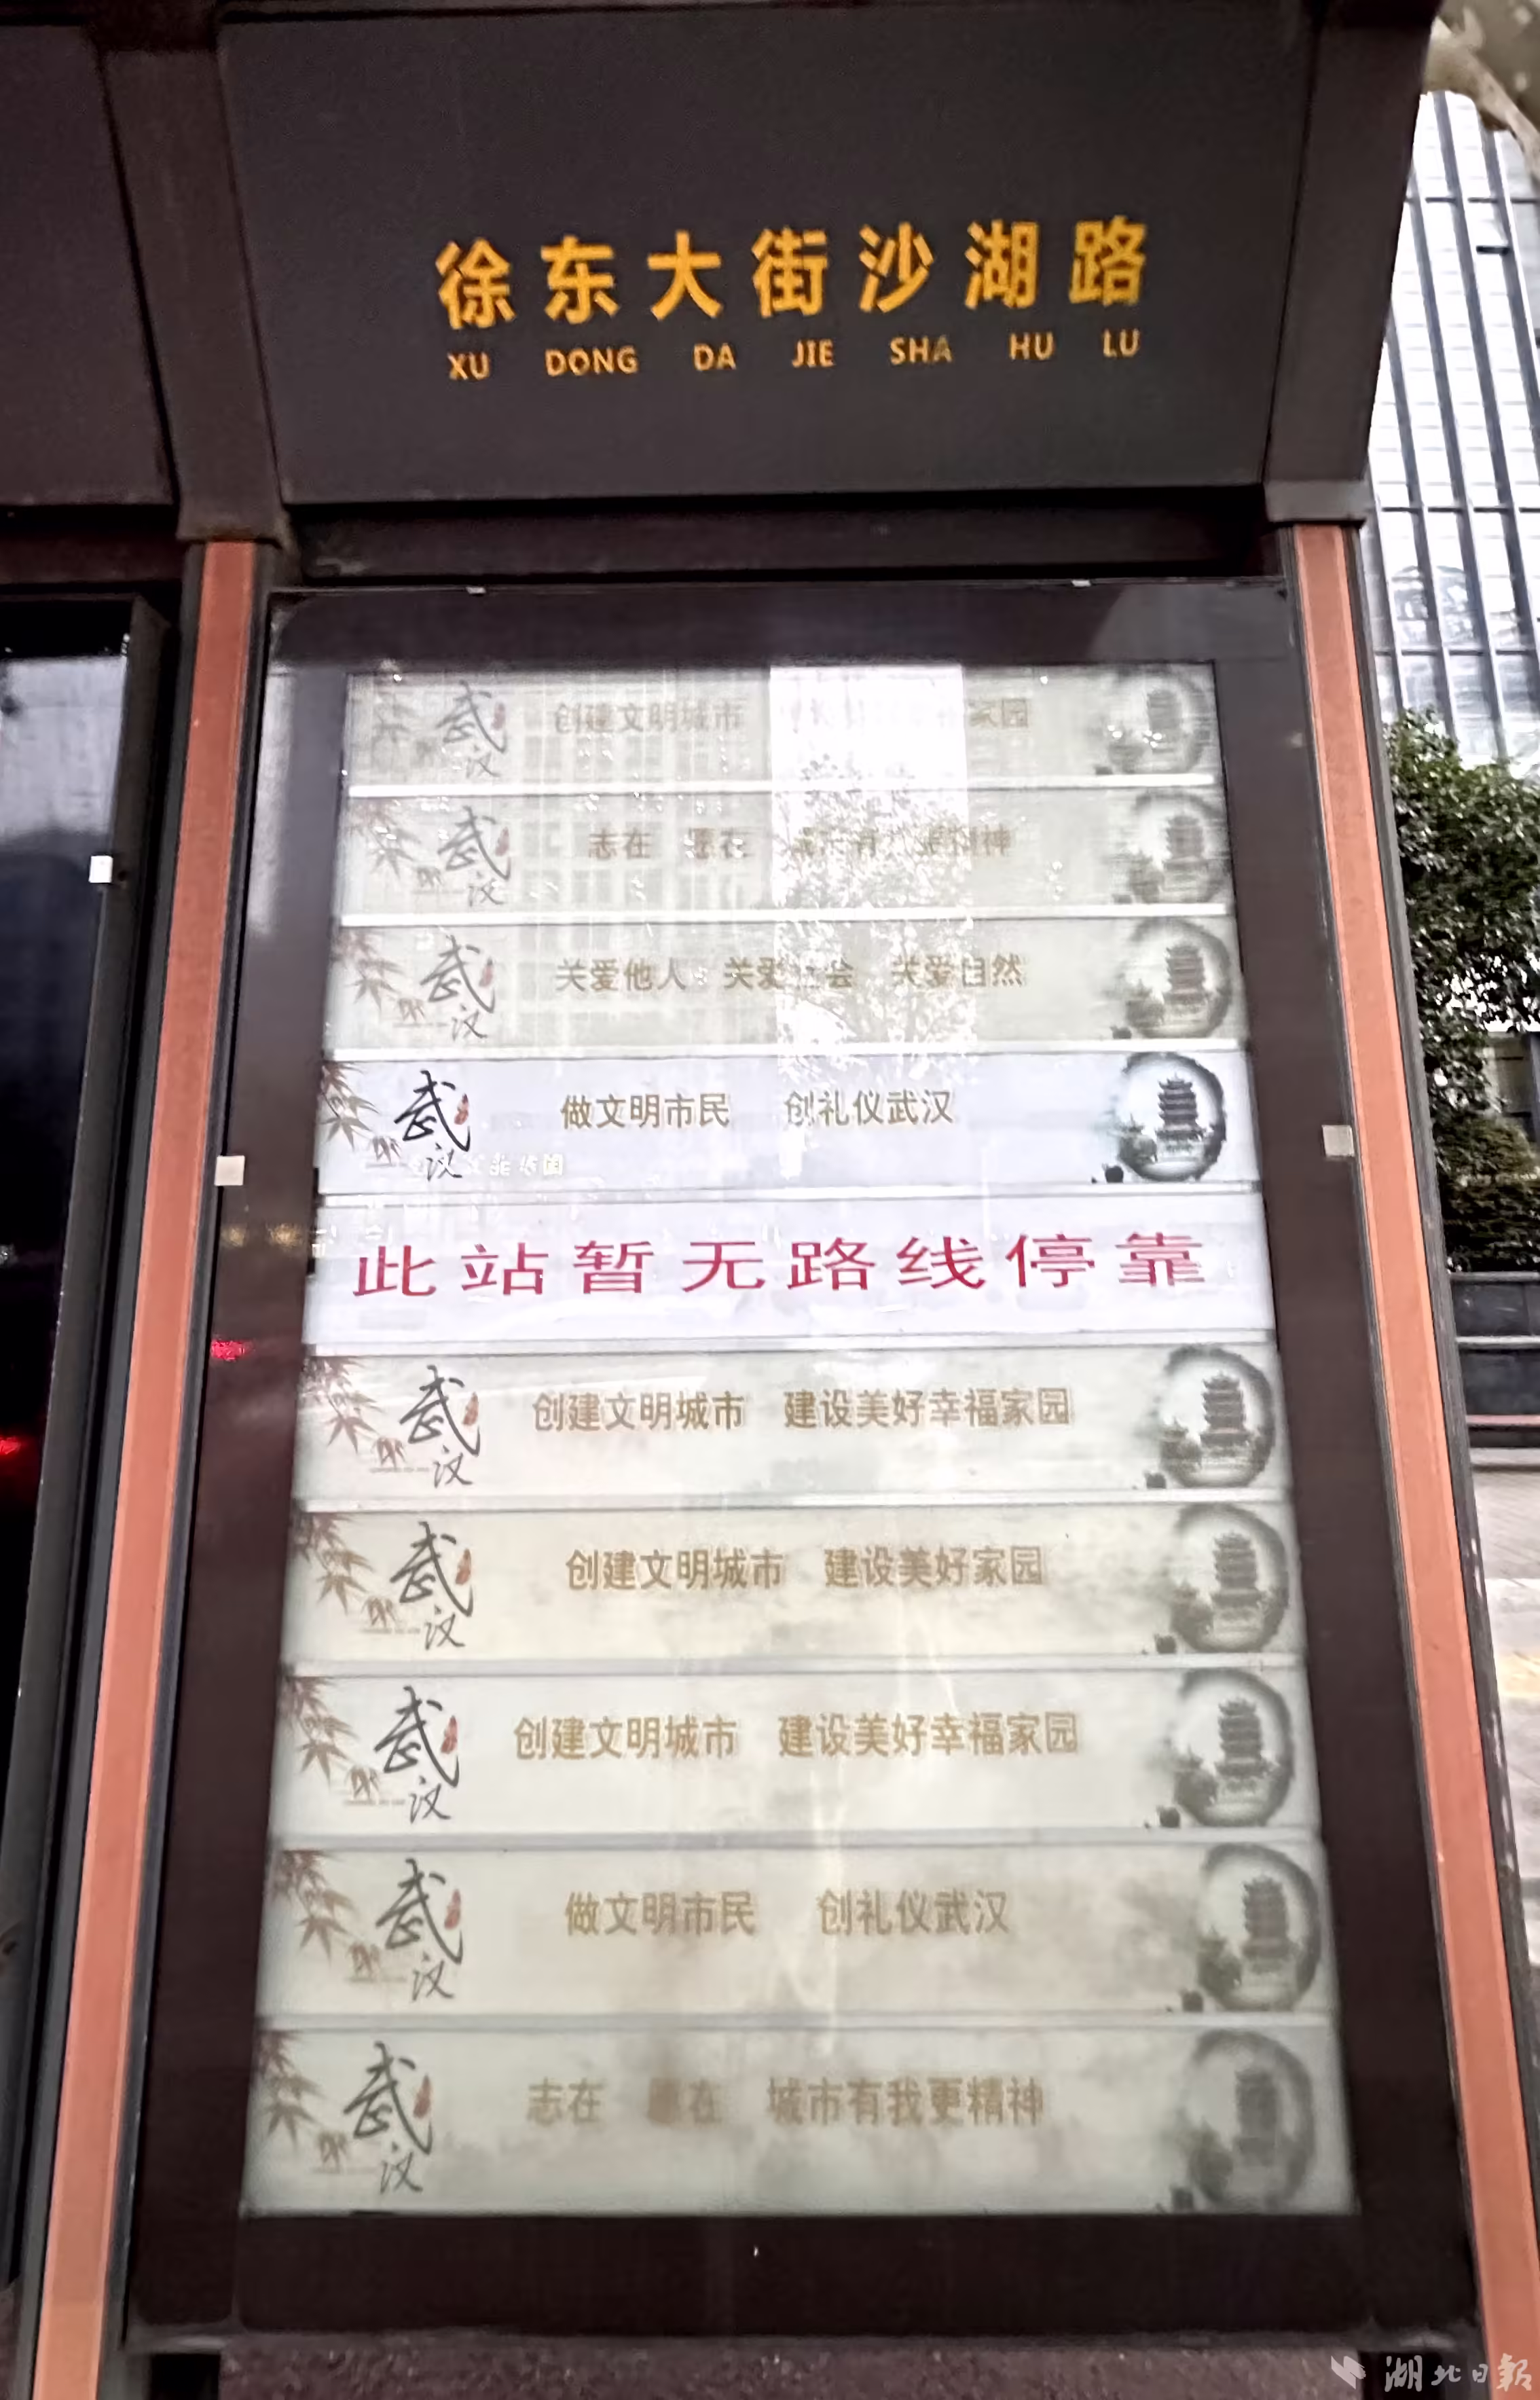 徐东大街沙湖路
XU DONG DA JIE SHA HU LU
武汉 创建文明城市 家园
武汉 志在 愿在
武汉 关爱他人 关爱社会 关爱自然
武汉 做文明市民 创礼仪武汉
此站暂无路线停靠
武汉 创建文明城市 建设美好幸福家园
武汉 创建文明城市 建设美好家园
武汉 创建文明城市 建设美好幸福家园
武汉 做文明市民 创礼仪武汉
武汉 志在 愿在 城市有我更精神
湖北日报